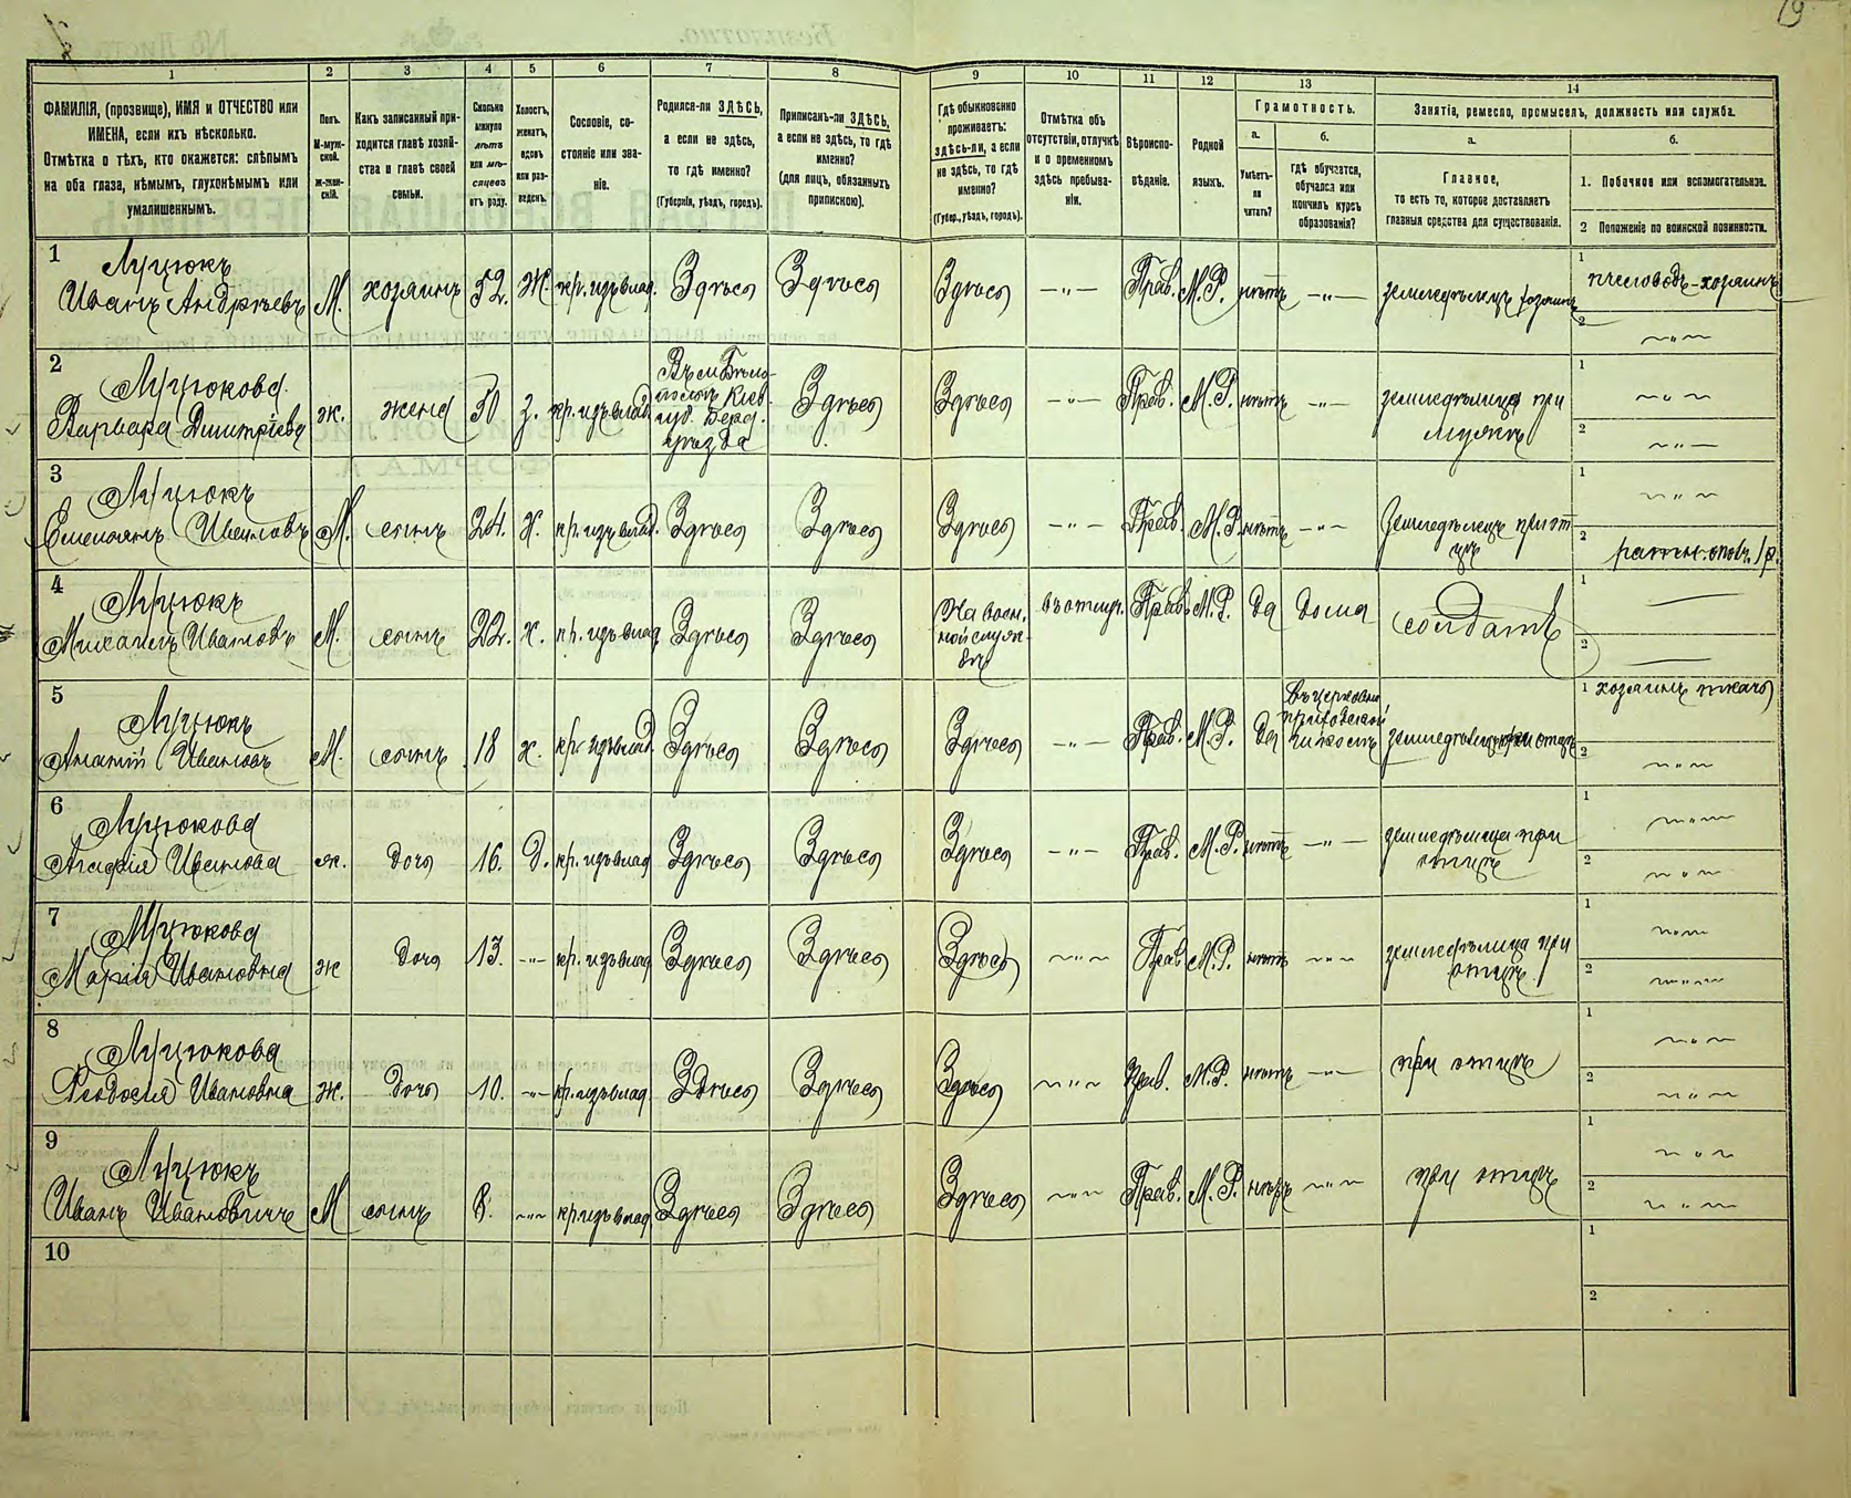 19
1 2 3 4 5 6 7 8 9 10 11 12 13 14
ФАМИЛІЯ, (прозвище), ИМЯ и ОТЧЕСТВО или
ИМЕНА, если ихъ нѣсколько.
Отмѣтка о тѣхъ, кто окажется: слѣпымъ
на оба глаза, нѣмымъ, глухонѣмымъ или
умалишеннымъ.
Полъ.
М-муж-
ской.
Ж-жен-
скій.
Какъ записанный при-
ходится главѣ хозяй-
ства и главѣ своей
семьи.
Сколько
минуло
лѣтъ
или мѣ-
сяцевъ
отъ роду.
Холостъ,
женатъ,
вдовъ
или раз-
веденъ.
Сословіе, со-
стояніе или зва-
ніе.
Родился-ли ЗДѢСЬ,
а если не здѣсь,
то гдѣ именно?
(Губернія, уѣздъ, городъ).
Приписанъ-ли ЗДѢСЬ,
а если не здѣсь, то гдѣ
именно?
(для лицъ, обязанныхъ
припискою).
Гдѣ обыкновенно
проживаетъ:
здѣсь-ли, а если
не здѣсь, то гдѣ
именно?
(Губер., уѣздъ, городъ).
Отмѣтка объ
отсутствіи, отлучкѣ
и о временномъ
здѣсь пребыва-
ніи.
Вѣроиспо-
вѣданіе.
Родной
языкъ.
Грамотность.
а.
Умѣетъ-
ли
читать?
б.
гдѣ обучается,
обучался или
кончилъ курсъ
образованія?
Занятія, ремесло, промыселъ, должность или служба.
а.
Главное,
то есть то, которое доставляетъ
главныя средства для существованія.
б.
1. Побочное или вспомогательное.
2 Положеніе по воинской повинности.
1
Луцюкъ
Иванъ Андрѣевъ М. хозяинъ 52. Ж. кр. изъ влад. Здѣсь Здѣсь Здѣсь —"— Прав. М.Р. нѣтъ —"— земледѣлецъ хозяинъ
1 пчеловодъ-хозяинъ
2 —"—
2
Луцюкова
Варвара Дмитріева ж. жена 50 з. кр. изъ влад.
Въ м. Бѣло-
Кіев.
губ. Берд.
уѣзда
Здѣсь Здѣсь —"— Прав. М.Р. нѣтъ —"— земледѣлица при
мужѣ
1 —"—
2 —"—
3
Луцюкъ
Емельянъ Ивановъ М. сынъ 24. х. кр. изъ влад. Здѣсь Здѣсь Здѣсь —"— Прав. М.Р. нѣтъ —"— Земледѣлецъ при от
цѣ
1 —"—
2 ратн. опол. 1 р.
4
Луцюкъ
Михаилъ Ивановъ М. сынъ 22. х. кр. изъ влад. Здѣсь Здѣсь
На воен.
ной служ-
бѣ
въ отлуч. Прав. М.Р. Да дома солдатъ
1 —
2 —
5
Луцюкъ
Ананій Ивановъ М. сынъ 18 х. кр. изъ влад. Здѣсь Здѣсь Здѣсь —"— Прав. М.Р. Да
въ церковно
приходской
школѣ
земледѣлецъ при отцѣ
1 хозяинъ ткачъ
2 —"—
6
Луцюкова
Агафія Иванова ж. дочь 16. д. кр. изъ влад Здѣсь Здѣсь Здѣсь —"— Прав. М.Р. нѣтъ —"— земледѣлица при
отцѣ
1 —"—
2 —"—
7
Луцюкова
Марія Ивановна ж дочь 13. —"— кр. изъ влад Здѣсь Здѣсь Здѣсь —"— Прав М.Р. нѣтъ —"— земледѣлица при
отцѣ
1 —"—
2 —"—
8
Луцюкова
Ѳеодосія Ивановна ж. дочь 10. —"— кр. изъ влад Здѣсь Здѣсь Здѣсь —"— Прав. М.Р. нѣтъ —"— при отцѣ
1 —"—
2 —"—
9
Луцюкъ
Иванъ Ивановичъ М сынъ 8. —"— кр изъ влад Здѣсь Здѣсь Здѣсь —"— Прав. М.Р. нѣтъ —"— при отцѣ
1 —"—
2 —"—
10
1
2